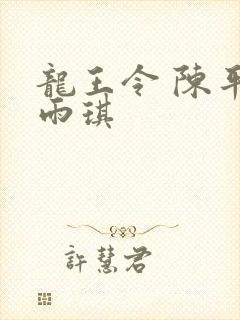 龍王令 陳平
雨琪
許慧君